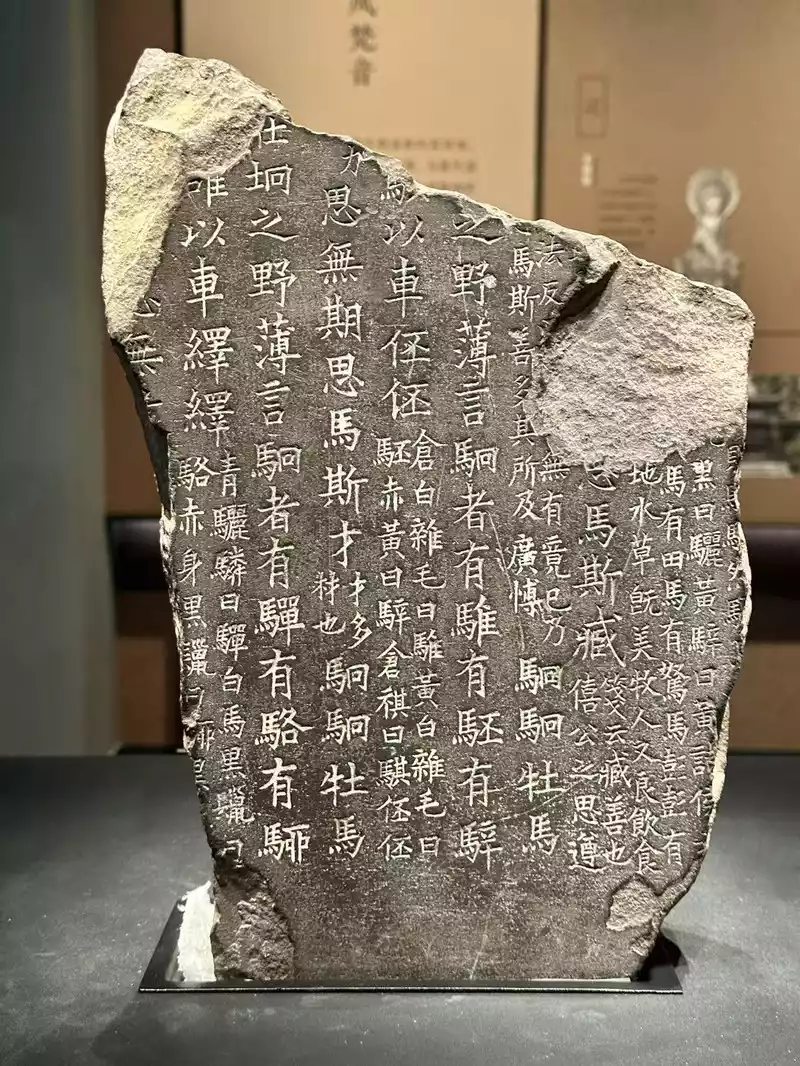 梵音
黑曰驪黃騂曰黃諸侯
馬有田馬有駑馬彭彭有
地水草旣美牧人又良飲食
思馬斯臧
箋云臧善也
僖公之思遵
法反
無有竟已乃
馬斯善多其所及廣博
駉駉牡馬
之野薄言駉者有騅有駓有騂
以車伾伾
倉白雜毛曰騅黃白雜毛曰
駓赤黃曰騂倉祺曰騏伾伾
力思無期思馬斯才
才多
材也
駉駉牡馬
在坰之野薄言駉者有驒有駱有駵
以車繹繹
青驪驎曰驒白馬黑鬣曰
駱赤身黑鬣曰駵黑
無